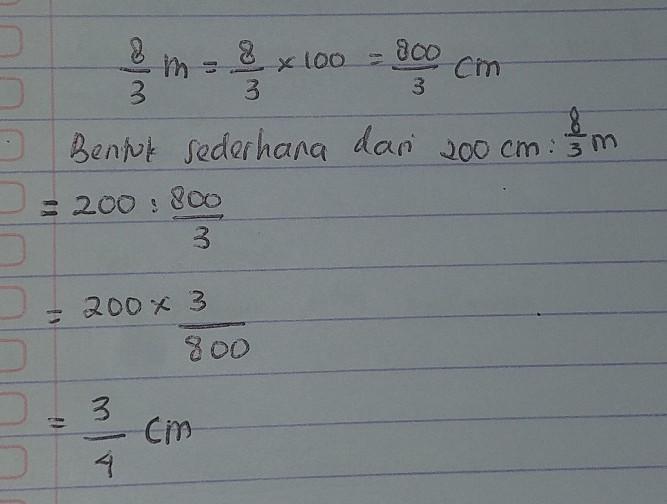 8/3 m = 8/3 × 100 = 800/3 cm
Bentuk sederhana dari 200 cm : 8/3 m
= 200 : 800/3
= 200 × 3/800
= 3/4 cm